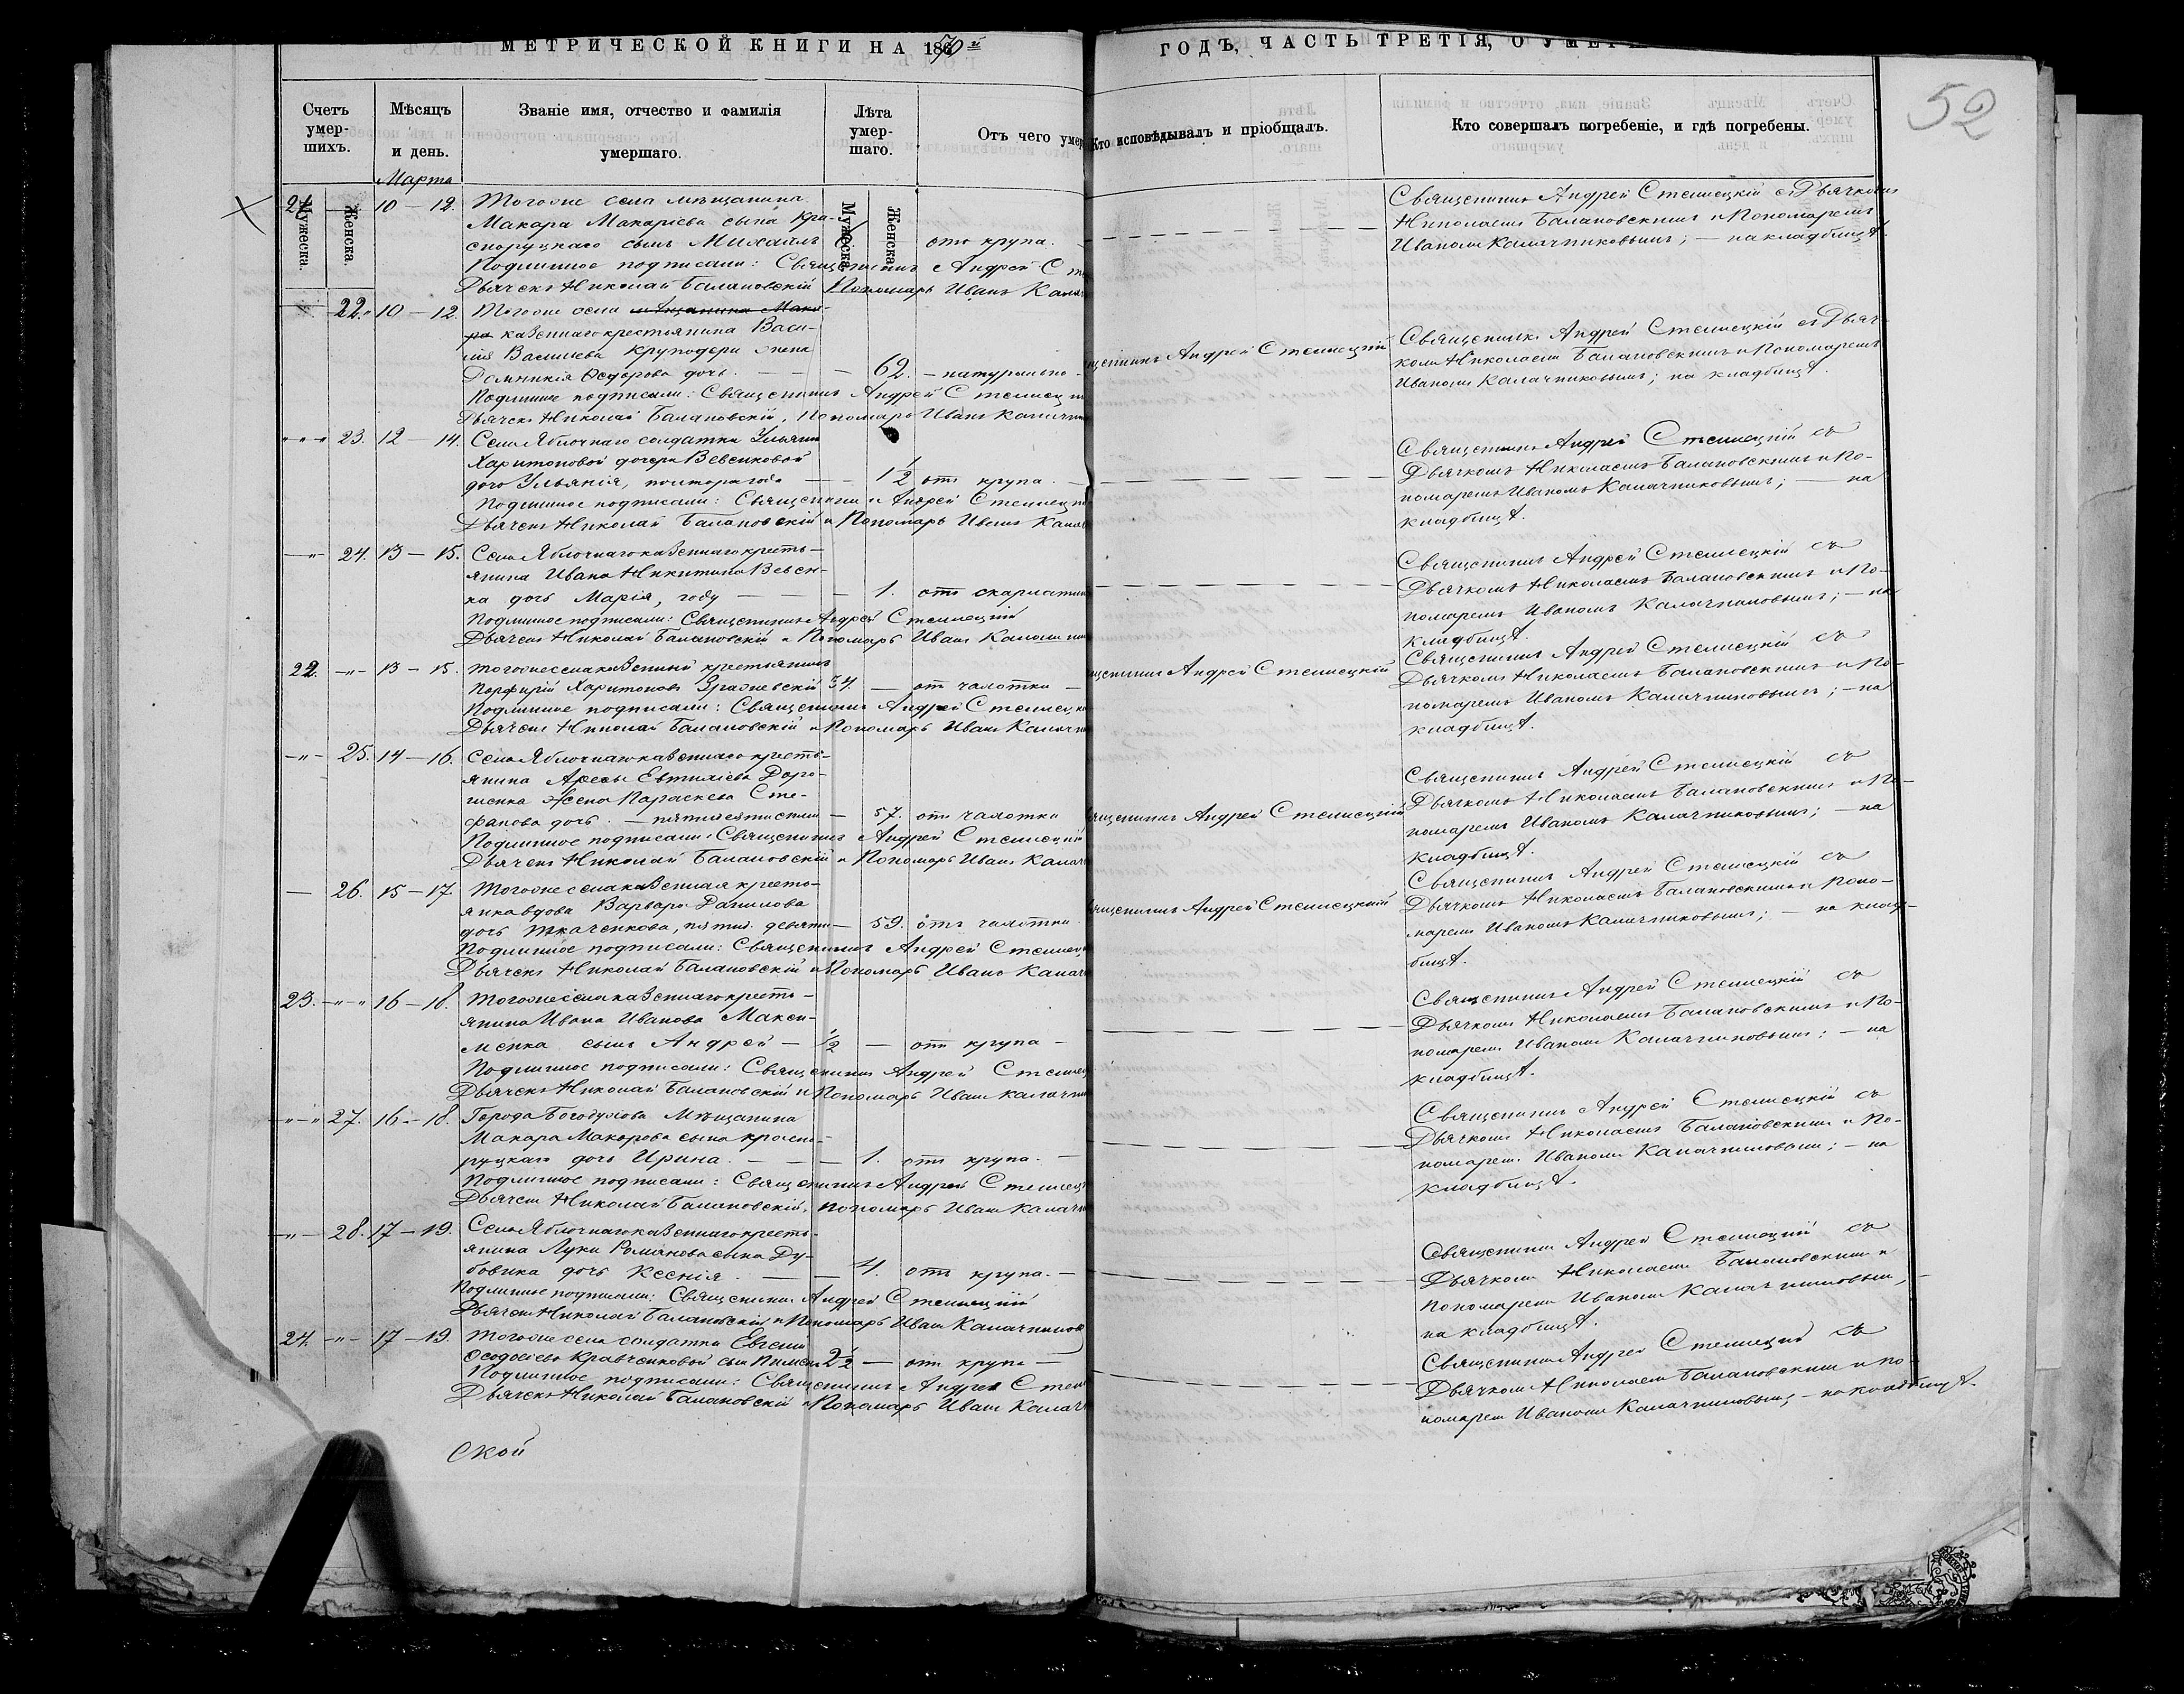 МЕТРИЧЕСКОЙ КНИГИ НА 1870й
ГОДЪ, ЧАСТЬ ТРЕТІЯ, О УМЕР
52
Счетъ умер-шихъ.
Мужеска.
Женска.
Мѣсяцъ и день.
Званіе имя, отчество и фамилія умершаго.
Лѣта умер-шаго.
Мужеска
Женска
Отъ чего умер
Кто исповѣдывалъ и пріобщалъ.
Кто совершалъ погребеніе, и гдѣ погребены.
Марта
21. — 10 — 12. Тогоже села мѣщанина
Макара Макаріева сына Кра-
снорУцкаго сынъ Михаилъ отъ крупа. —
Подлинное подписали: Священникъ Андрей Сте
Дьячекъ Николай Балановскій Пономарь Иванъ Кала
Священникъ Андрей Стеллецкій съ Дьячкомъ
Николаемъ Балановскимъ и Пономаремъ
Иваномъ Калачниковымъ; — на кладбищѣ.
22. 10 — 12. Тогоже села мѣщанина Мака-
ра казеннаго крестьянина Васи-
лія Васильева Круподери жена
Домникія Ѳедорова дочь. — — — 62. — натурально —
Подлинное подписали: Священникъ Андрей Стеллец
Дьячекъ Николай Балановскій, Пономарь Иванъ Калачн
щенникъ Андрей Стеллецкій
Священникъ Андрей Стеллецкій съ Дьяч-
комъ Николаемъ Балановскимъ и Пономаремъ
Иваномъ Калачниковымъ; на кладбищѣ.
23. 12 — 14. Села Яблочнаго солдатки Ульяны
Харитоновой дочери Вевенковой
дочь Ульянія, полтора года — — 1½ отъ крупа. —
Подлинное подписали: Священникъ Андрей Стеллецк
Дьячекъ Николай Балановскій и Пономарь Иванъ Кала
Священникъ Андрей Стеллецкій съ
Дьячкомъ Николаемъ Балановскимъ и По-
номаремъ Иваномъ Калачниковымъ; — на
кладбищѣ.
24. 13 — 15. Села Яблочнаго казеннаго кресть-
янина Ивана Никитина Вевен-
ка дочь Марія, году — — — 1. отъ скарлатин
Подлинное подписали: Священникъ Андрей Стеллецкій
Дьячекъ Николай Балановскій и Пономарь Иванъ Калачн
Священникъ Андрей Стеллецкій съ
Дьячкомъ Николаемъ Балановскимъ и По-
номаремъ Иваномъ Калачниковымъ; — на
кладбищѣ.
22. — 13 — 15. Тогоже села казенный крестьянинъ
Порфирій Харитоновъ 34. — отъ чахотки —
Подлинное подписали: Священникъ Андрей Стеллецк
Дьячекъ Николай Балановскій и Пономарь Иванъ Калачн
щенникъ Андрей Стеллецкій
Священникъ Андрей Стеллецкій съ
Дьячкомъ Николаемъ Балановскимъ и По-
номаремъ Иваномъ Калачниковымъ; — на
кладбищѣ.
25. 14 — 16. Села Яблочнаго казеннаго кресть-
янина Евтихіева Доро-
шенка жена Параскева Сте-
фанова дочь. — — 57. отъ чахотки
Подлинное подписали: Священникъ Андрей Стеллецкій
Дьячекъ Николай Балановскій и Пономарь Иванъ Калач
ященникъ Андрей Стеллецкій
Священникъ Андрей Стеллецкій съ
Дьячкомъ Николаемъ Балановскимъ и По-
номаремъ Иваномъ Калачниковымъ; — на
кладбищѣ.
26. 15 — 17. Тогоже села казенная кресть-
янка вдова Варвара Данилова
дочь Ткаченкова, пятид. девяти — 59. отъ чахотки
Подлинное подписали: Священникъ Андрей Стеллец
Дьячекъ Николай Балановскій и Пономарь Иванъ Калач
ященникъ Андрей Стеллецкій
Священникъ Андрей Стеллецкій съ
Дьячкомъ Николаемъ Балановскимъ и Поно-
маремъ Иваномъ Калачниковымъ; — на клад-
бищѣ.
23. — 16 — 18. Тогоже села казеннаго кресть-
янина Ивана Иванова Макси-
менка сынъ Андрей — ½ — отъ крупа —
Подлинное подписали: Священникъ Андрей Стеллец
Дьячекъ Николай Балановскій и Пономарь Иванъ Калачн
Священникъ Андрей Стеллецкій съ
Дьячкомъ Николаемъ Балановскимъ и По-
номаремъ Иваномъ Калачниковымъ; — на
кладбищѣ.
27. 16 — 18. Города Богодухова Мѣщанина
Макара Макарова сына Красно-
руцкаго дочь Ирина. — — — 1. отъ крупа. —
Подлинное подписали: Священникъ Андрей Стеллец
Дьячекъ Николай Балановскій, Пономарь Иванъ Калачн
Священникъ Андрей Стеллецкій съ
Дьячкомъ Николаемъ Балановскимъ и По-
номаремъ Иваномъ Калачниковымъ; — на
кладбищѣ.
28. 17 — 19. Села Яблочнаго казеннаго кресть-
янина Луки Романова сына Ду-
бовика дочь Ксенія. — — 4. отъ крупа. —
Подлинное подписали: Священникъ Андрей Стеллецкій
Дьячекъ Николай Балановскій и Пономарь Иванъ Калачников
Священникъ Андрей Стеллецкій съ
Дьячкомъ Николаемъ Балановскимъ и
Пономаремъ Иваномъ Калачниковымъ, —
на кладбищѣ.
24. — 17 — 19. Тогоже села солдатки Евгеніи
Ѳеодосіевой Кравченковой сынъ Пименъ 2½ — отъ крупа —
Подлинное подписали: Священникъ Андрей Стел
Дьячекъ Николай Балановскій и Пономарь Иванъ Калач
Священникъ Андрей Стеллецкій съ
Дьячкомъ Николаемъ Балановскимъ и По-
номаремъ Иваномъ Калачниковымъ; — на кладбищѣ.
ской